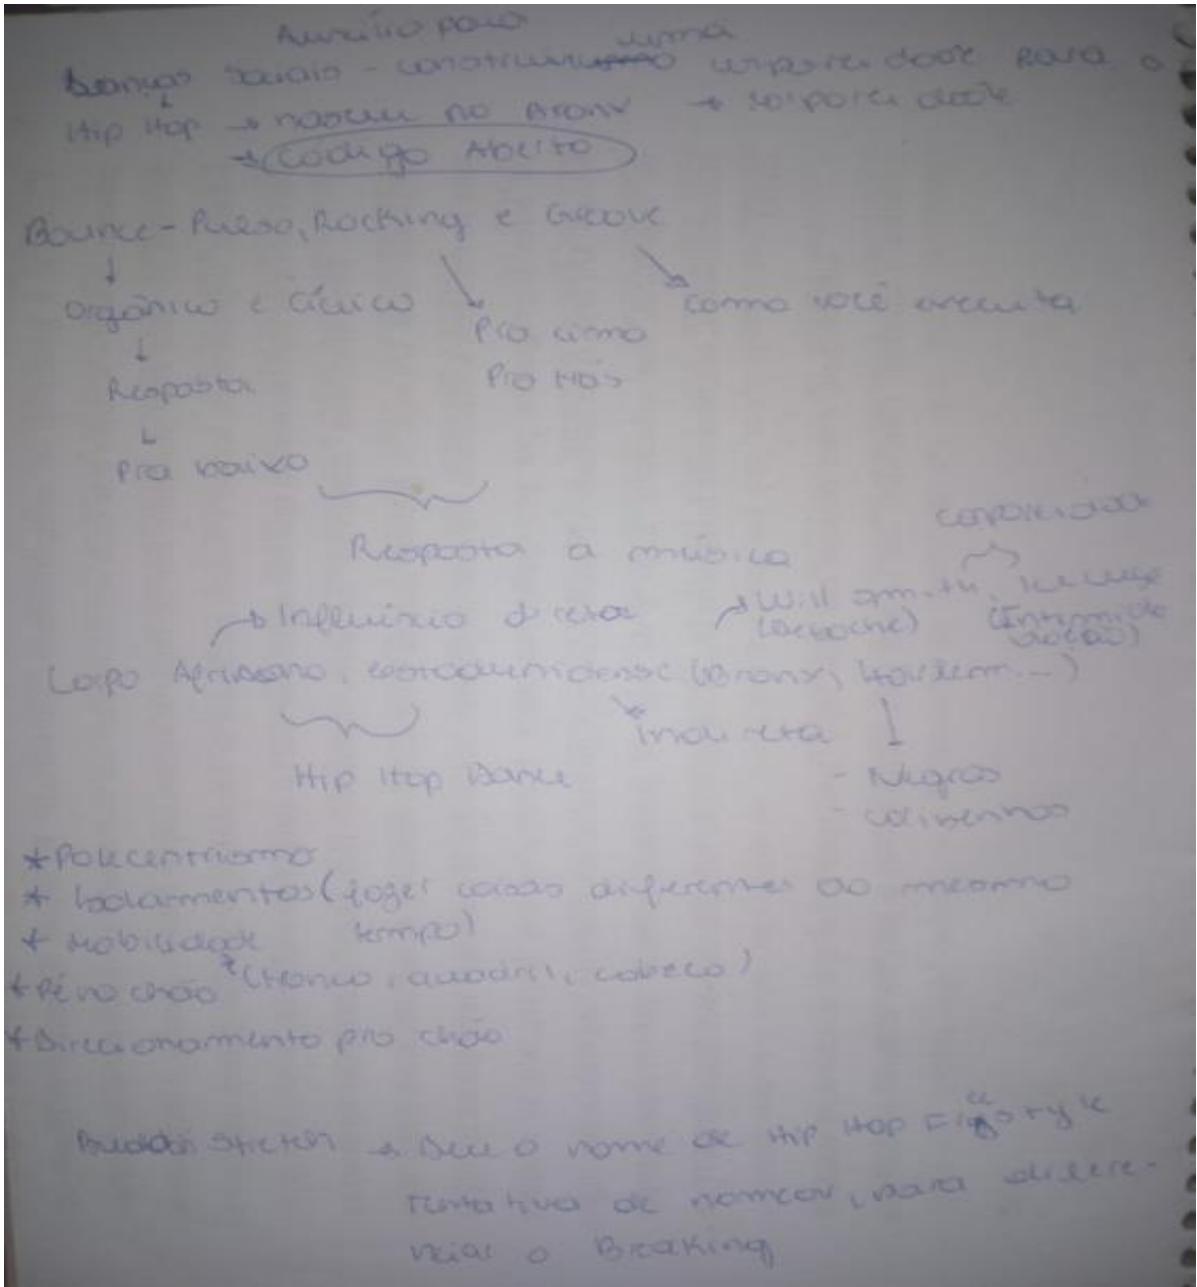 Auxílio para
Danças Sociais - construírem uma corporeidade para o
Hip Hop → nasceu no Bronx → corporeidade
→ Código Aberto
Bounce - Pulso, Rocking e Groove
↓
Orgânico e Cíclico
Como você executa
↓
Pra cima
Resposta
Pra trás
↓
Pra baixo
Resposta à música
corporeidade
→ Influência direta
→ Will Smith, Ice Cube
(Deboche) (Intimidação)
Corpo Africano, estadunidense (Bronx, Harlem...)
indireta
Hip Hop Dance
- Negros
- caribenhos
* Policentrismo
* Isolamentos (fazer coisas diferentes ao mesmo
tempo)
* Mobilidade
(tronco, quadril, cabeça)
* Pé no chão
* Direcionamento pro chão
Buddah Stretch → Deu o nome de Hip Hop Freestyle
tentativa de nomear, para difere-
nciar o Breaking